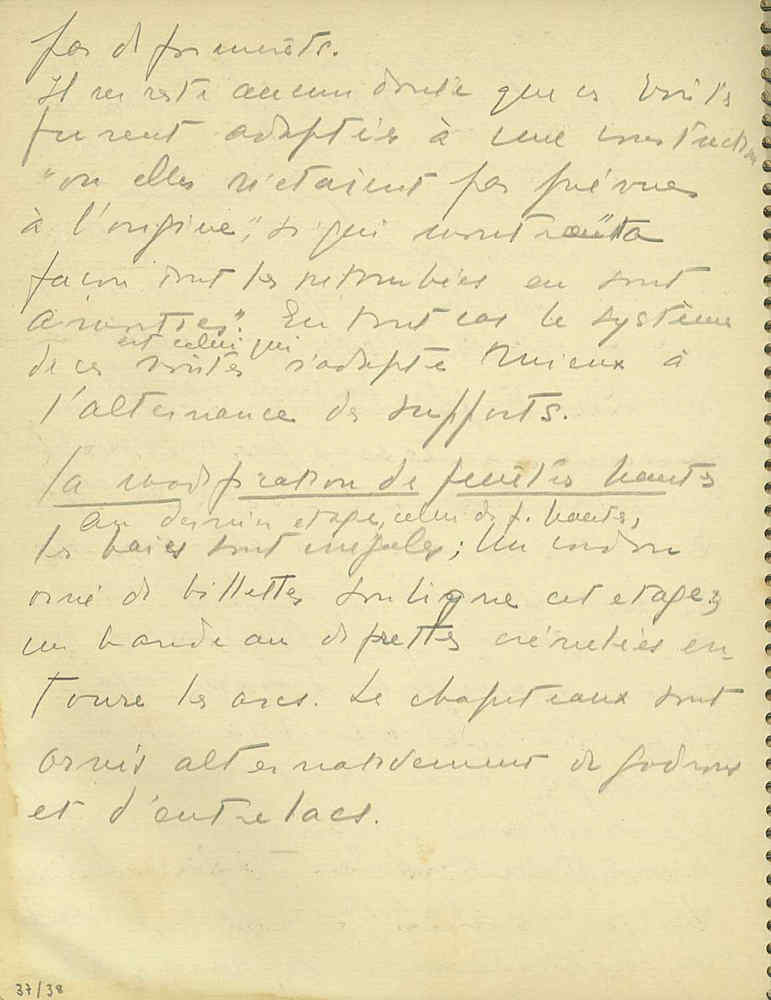 pas de formerets.
Il ne reste aucun doute que ces voûtes
furent adaptées à une construction
"où elles n'étaient pas prévues
à l'origine", ce qui montre la
façon dont les retombées en sont
En tout cas le système
de ces voûtes est celui qui s'adapte mieux à
l'alternance des supports.
La modification de fenêtres hautes
au dernier etage, celui des f. hautes,
les baies sont inégales; Un cordon
orné de billettes souligne cet etage;
un bandeau de frettes crénelées en-
toure les arcs. Les chapiteaux sont
ornés alternativement de godrons
et d'entrelacs.
37/38